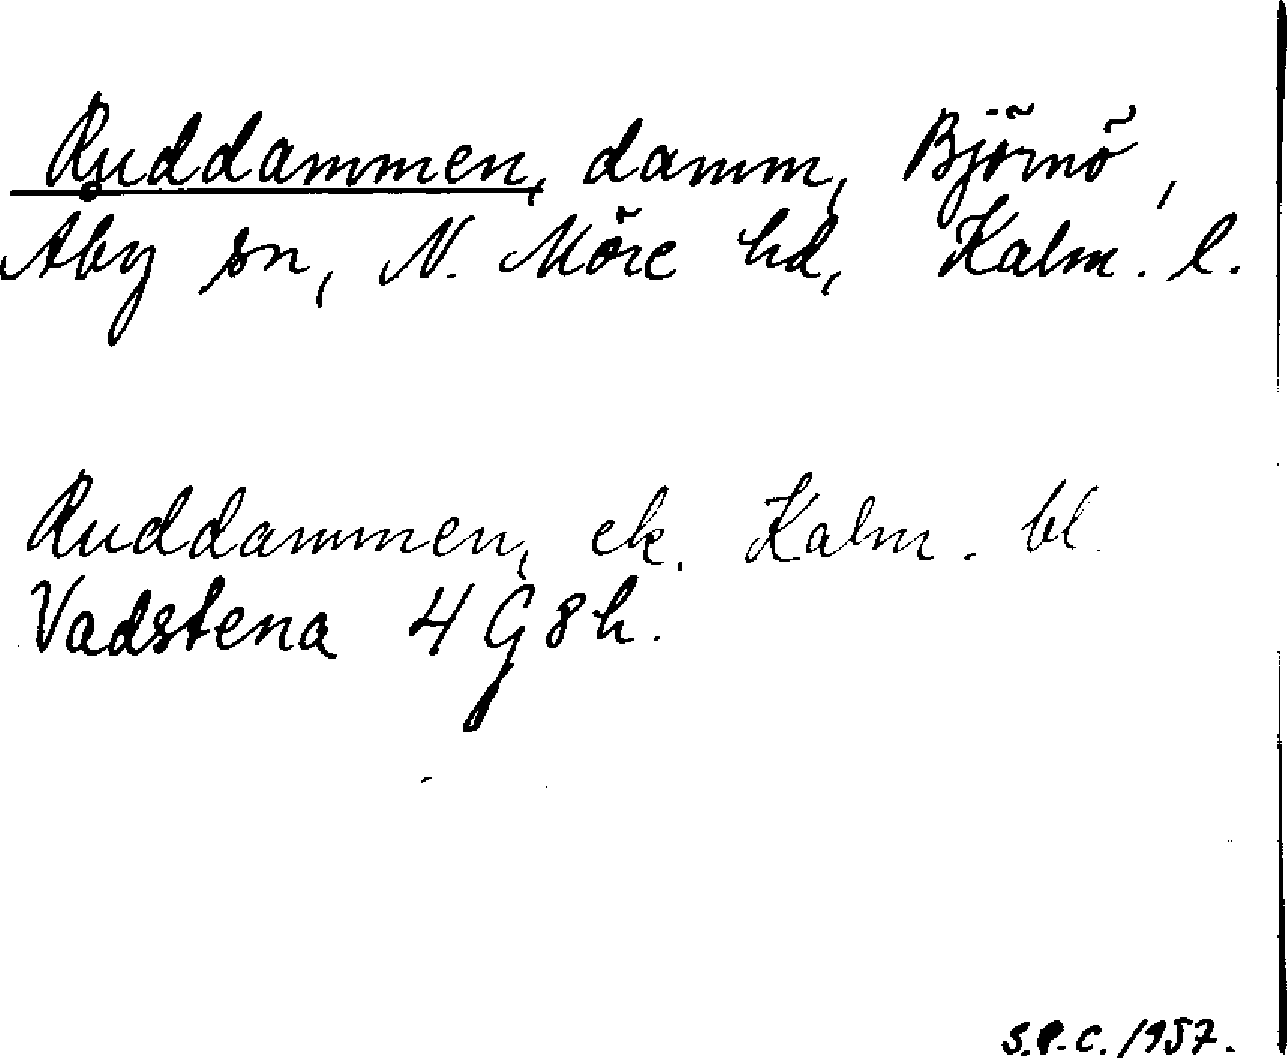 Ruddammen, damm, Björnö,
Åby sn, N. Möre hd, Kalm. l.
Ruddammen, ek. Kalm. bl.
Vadstena 4 G 8 h.
S.P.C. 1957.